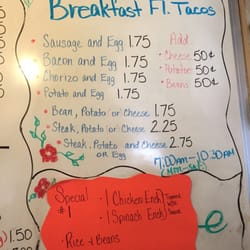 Breakfast Fl. Tacos
Sausage and Egg 1.75
Bacon and Egg 1.75
Chorizo and Egg 1.75
Potato and Egg 1.75
Add
Cheese 50¢
Potatoe 50¢
Beans 50¢
Bean, Potato or Cheese 1.75
Steak, Potato or Cheese 2.25
Steak, Potato and Cheese 2.75
or Egg
7:00AM - 10:30AM
(Mon-Sat)
Special
#1
1 Chicken Ench
1 Spinach Ench
Rice & Beans
1.50